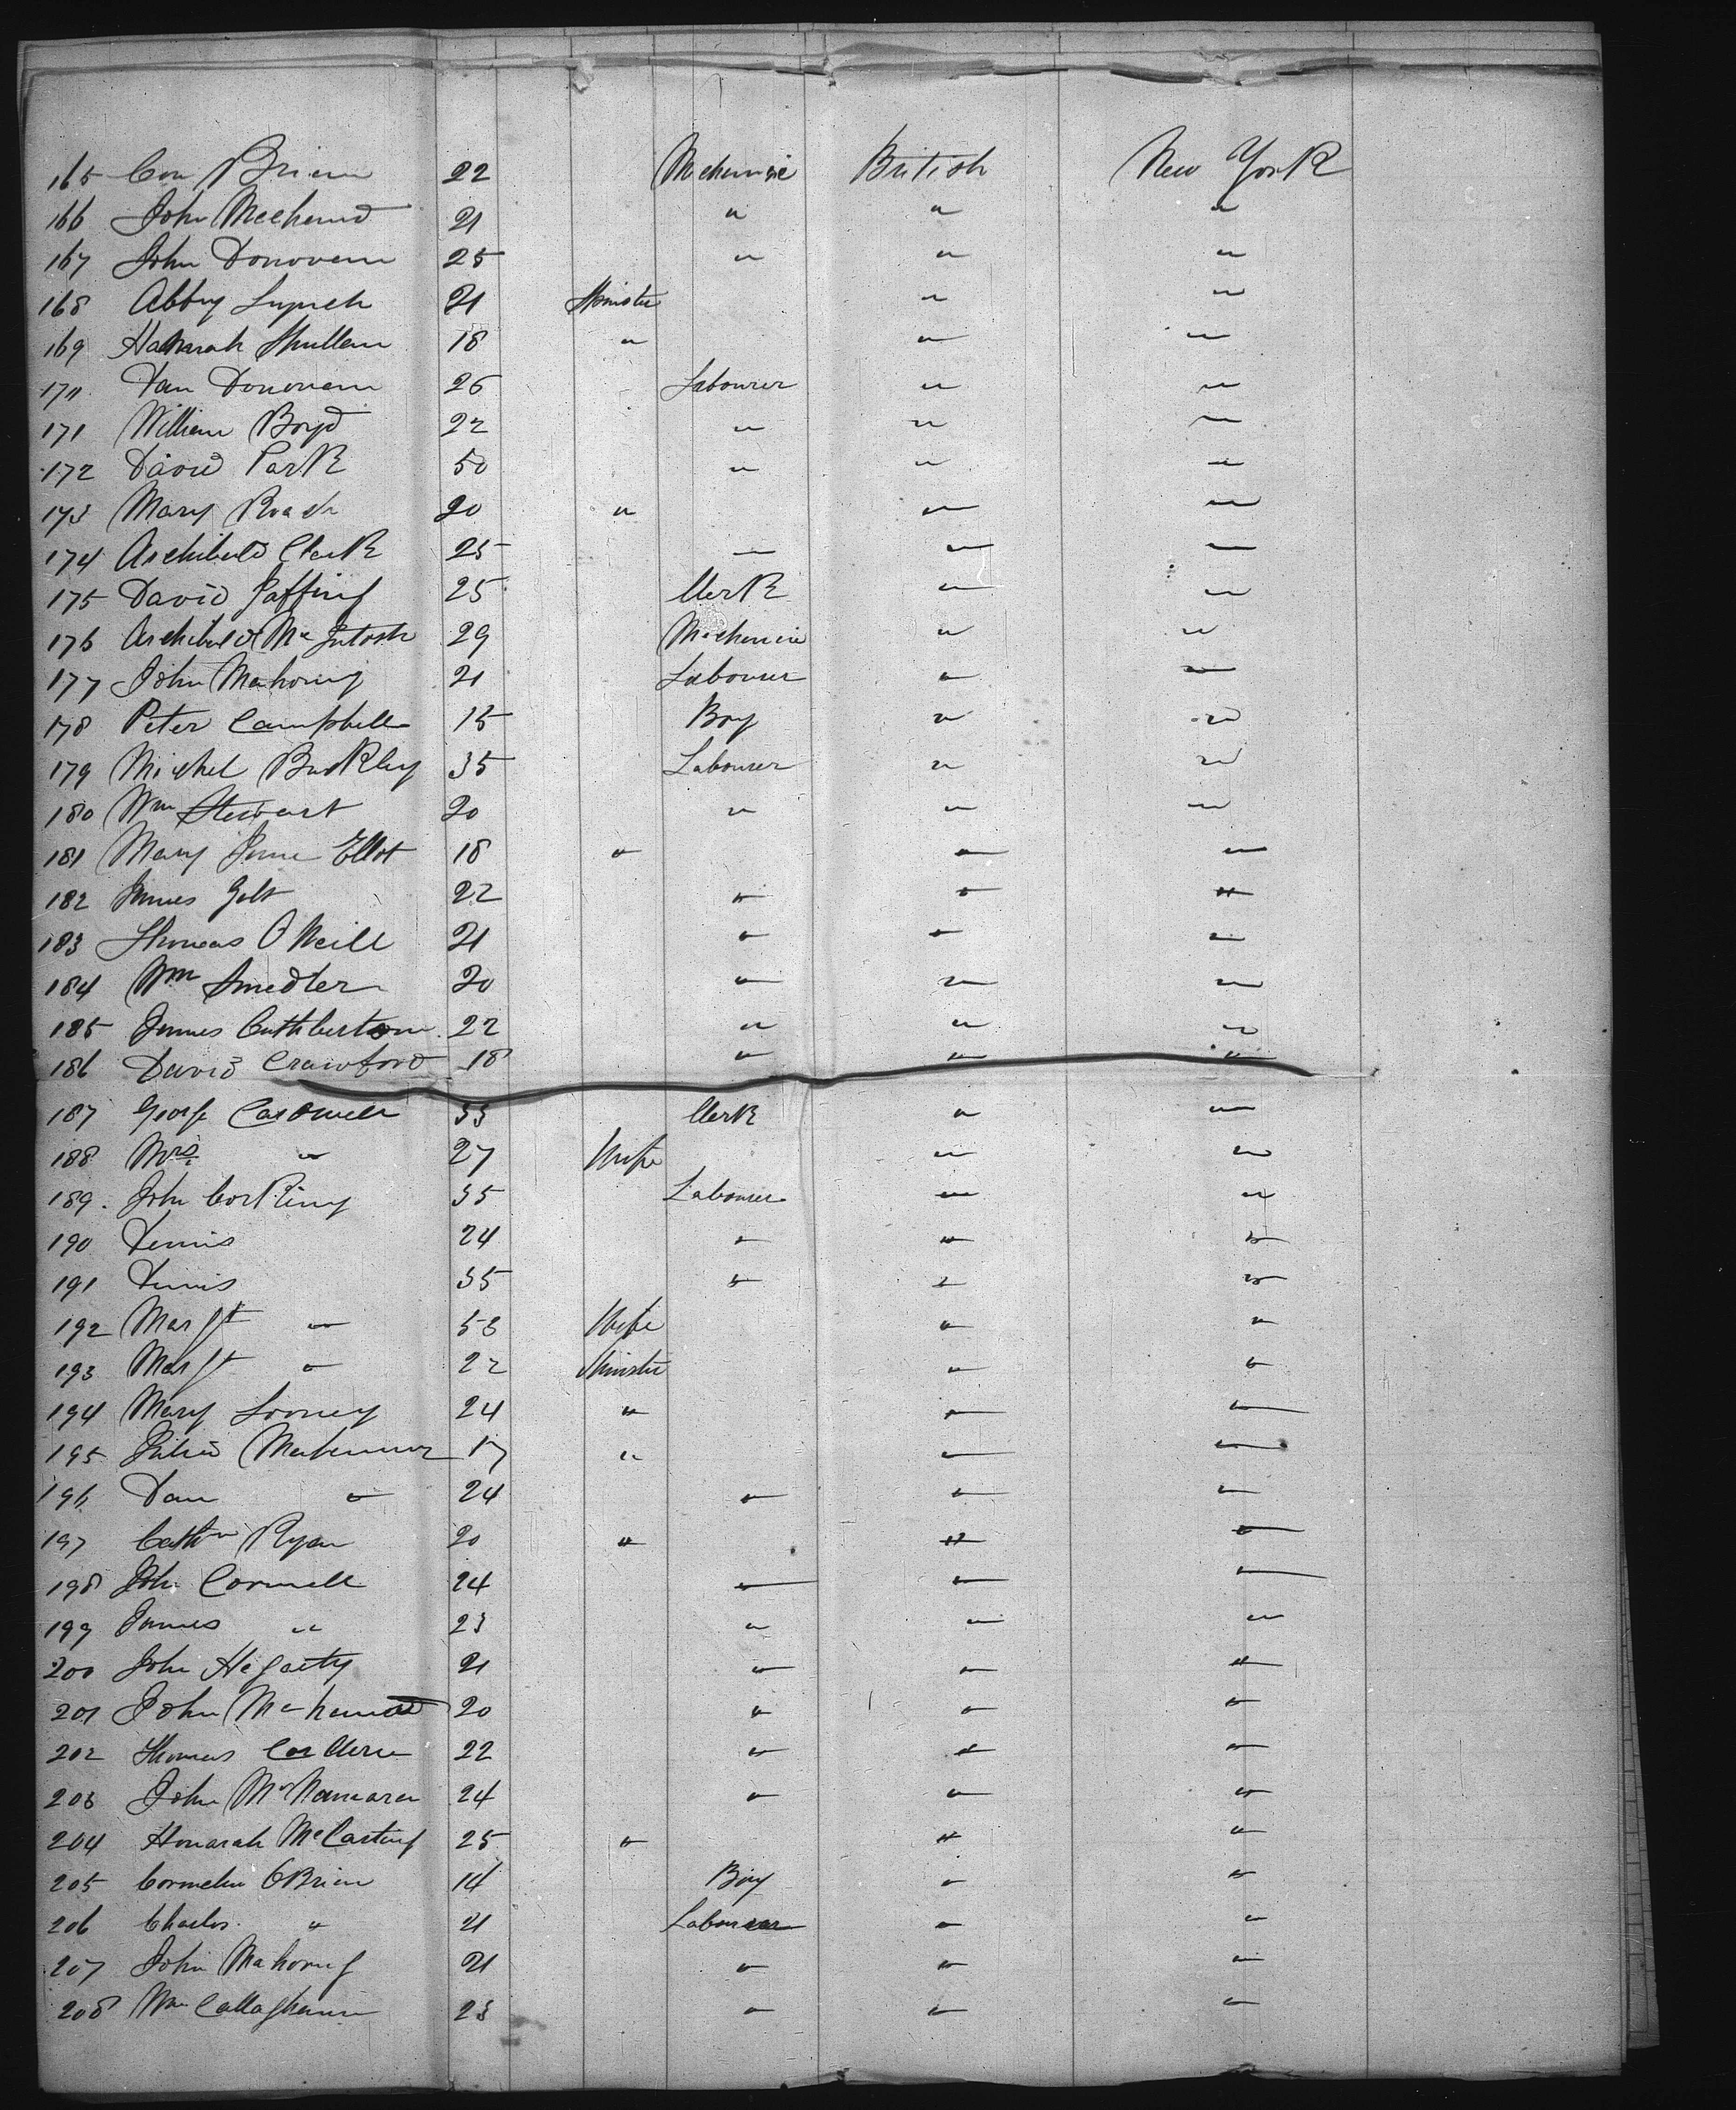 165 Con Brien 22 Mechanic British New York
166 John Mechand 21 " " "
167 John Donovan 25 " " "
168 Abby Lynch 21 Spinster " "
169 Hannah Mullan 18 " " "
170 Dan Donovan 26 Labourer " "
171 William Boyd 22 " " "
172 David Park 50 " " "
173 Mary Roach 20 " " "
174 Archibald Clark 25 " " "
175 David Jaffrey 25 Clerk " "
176 Archibald McIntosh 29 Mechanic " "
177 John Mahony 21 Labourer " "
178 Peter Campbell 15 Boy " "
179 Michel Buckley 35 Labourer " "
180 Wm Stewart 20 " " "
181 Mary Jane Ellot 18 " " "
182 James Galt 22 " " "
183 Thomas O Neill 21 " " "
184 Wm Smedler 20 " " "
185 James Cuthbertson 22 " " "
186 David Crawford 18 " " "
187 George Cardwell 33 Clerk " "
188 Mrs " 27 Wife " "
189 John Corkiny 35 Labourer " "
190 Dennis 24 " " "
191 Dennis 55 " " "
192 Margt " 53 Wife " "
193 Margt " 22 Spinster " "
194 Mary Looney 24 " " "
195 Julia 17 " " "
196 Dan " 24 " " "
197 Cathn Ryan 20 " " "
198 John Cornell 24 " " "
199 James " 23 " " "
200 John Hegarty 21 " " "
201 John 20 " " "
202 Thomas 22 " " "
203 John McNamara 24 " " "
204 Honarah McCarthy 25 " " "
205 Cornelius OBrien 14 Boy " "
206 Charles " 21 Labourer " "
207 John Mahony 21 " " "
208 Wm Callaghan 23 " " "